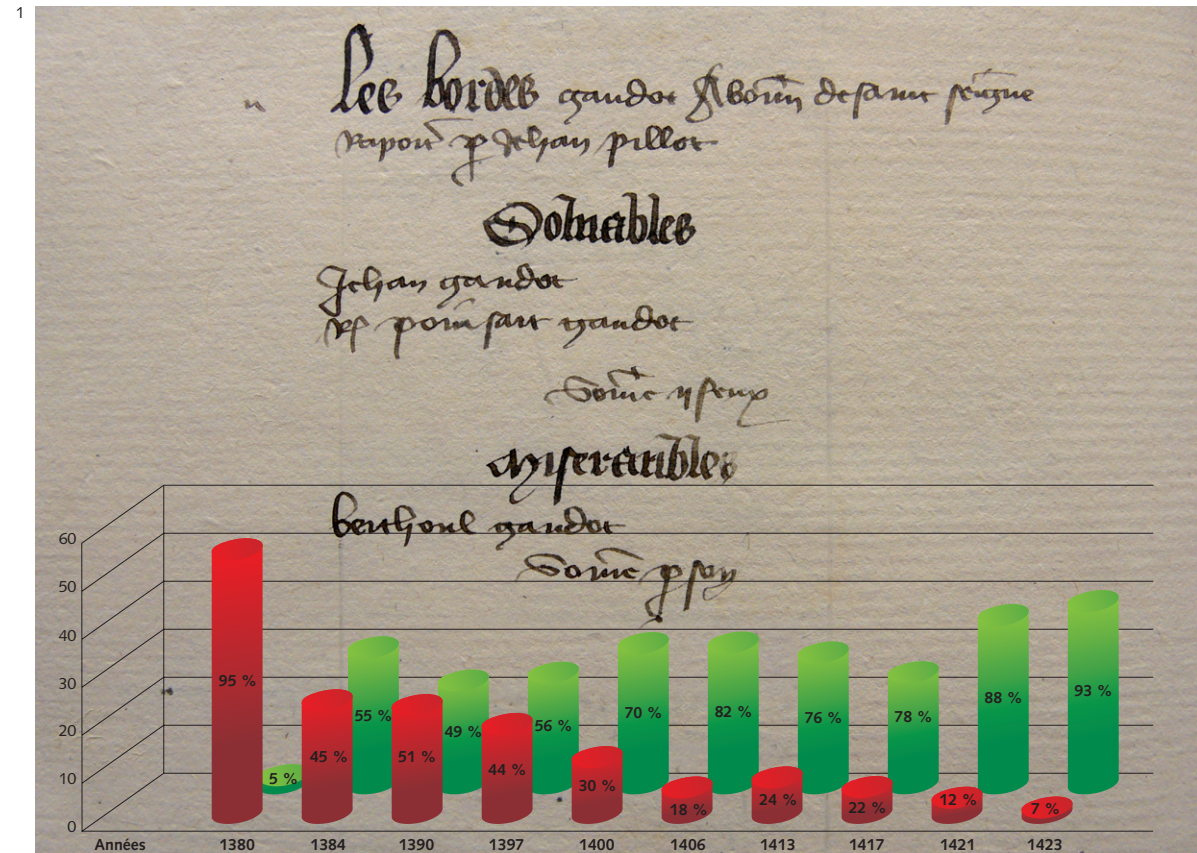 1
les bordes gaudot Abonn de saint seigne
Raport p Jehan pillot
Solvables
Jehan gaudot
poinsart gaudot
Some ij feux
miserables
berthoul gaudot
Some p soy
60
50
40
30
20
10
0
95 % 5 % 45 % 55 % 51 % 49 % 44 % 56 % 30 % 70 % 18 % 82 % 24 % 76 % 22 % 78 % 12 % 88 % 7 % 93 %
Années 1380 1384 1390 1397 1400 1406 1413 1417 1421 1423